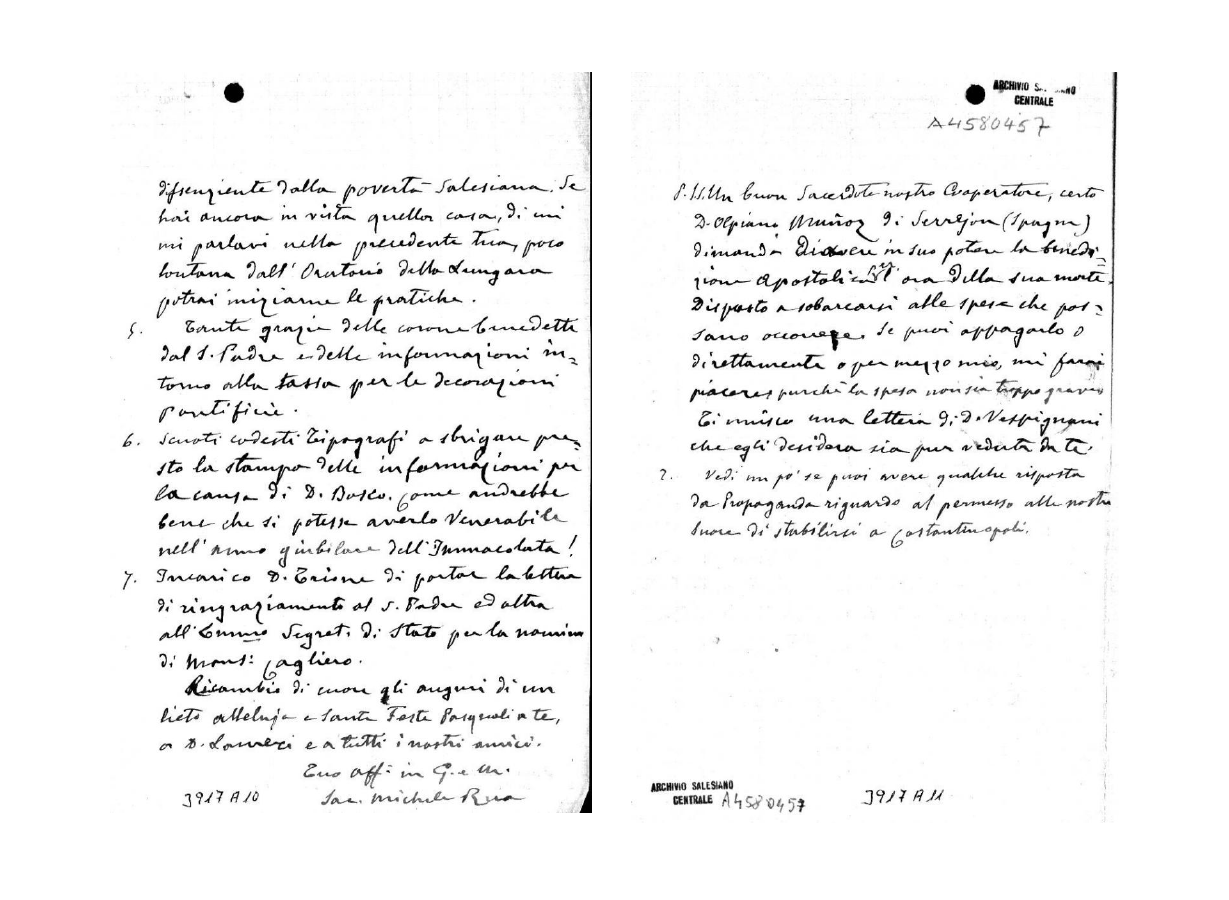 dissenziente dalla povertà Salesiana. Se
hai ancora in vista quella casa, di cui
mi parlavi nella precedente tua, poco
lontana dall'Oratorio della Lungara
potrai iniziarne le pratiche.
5. Tante grazie delle corone benedette
dal S. Padre e delle informazioni in=
torno alla tassa per le decorazioni
Pontificie.
6. Scuoti codesti Tipografi a sbrigare pre=
sto la stampa delle informazioni per
la causa di D. Bosco. Come andrebbe
bene che si potesse averlo Venerabile
nell'anno giubilare dell'Immacolata!
7. Incarico D. Trione di portar la lettera
di ringraziamento al S. Padre ed altra
all'Emmo Segret. di Stato per la nomina
di Mons: Cagliero.
Ricambio di cuore gli auguri di un
lieto alleluja e Sante Feste Pasquali a te,
a D. e a tutti i nostri amici.
Tuo aff: in G. e M.
Sac. Michele Rua
3917 A 10
ARCHIVIO
CENTRALE
A4580457
P.S. Un buon Sacerdote nostro Cooperatore, certo
D. Olpiano Muñoz di Serrejon (Spagna)
dimanda di avere in suo potere la benedi=
zione Apostolica ora della sua morte.
Disposto a sobarcarsi alle spese che pos=
sano occorrere. Se puoi appagarlo o
direttamente o per mezzo mio, mi farai
piacere, purchè la spesa non sia troppo grave
Ti unisco una lettera di D. Vespignani
che egli desidera sia pur veduta da te.
2. Vedi un po' se puoi avere qualche risposta
da Propaganda riguardo al permesso alle nostre
Suore di stabilirsi a Costantinopoli.
ARCHIVIO SALESIANO
CENTRALE A4580457
3917 A 11